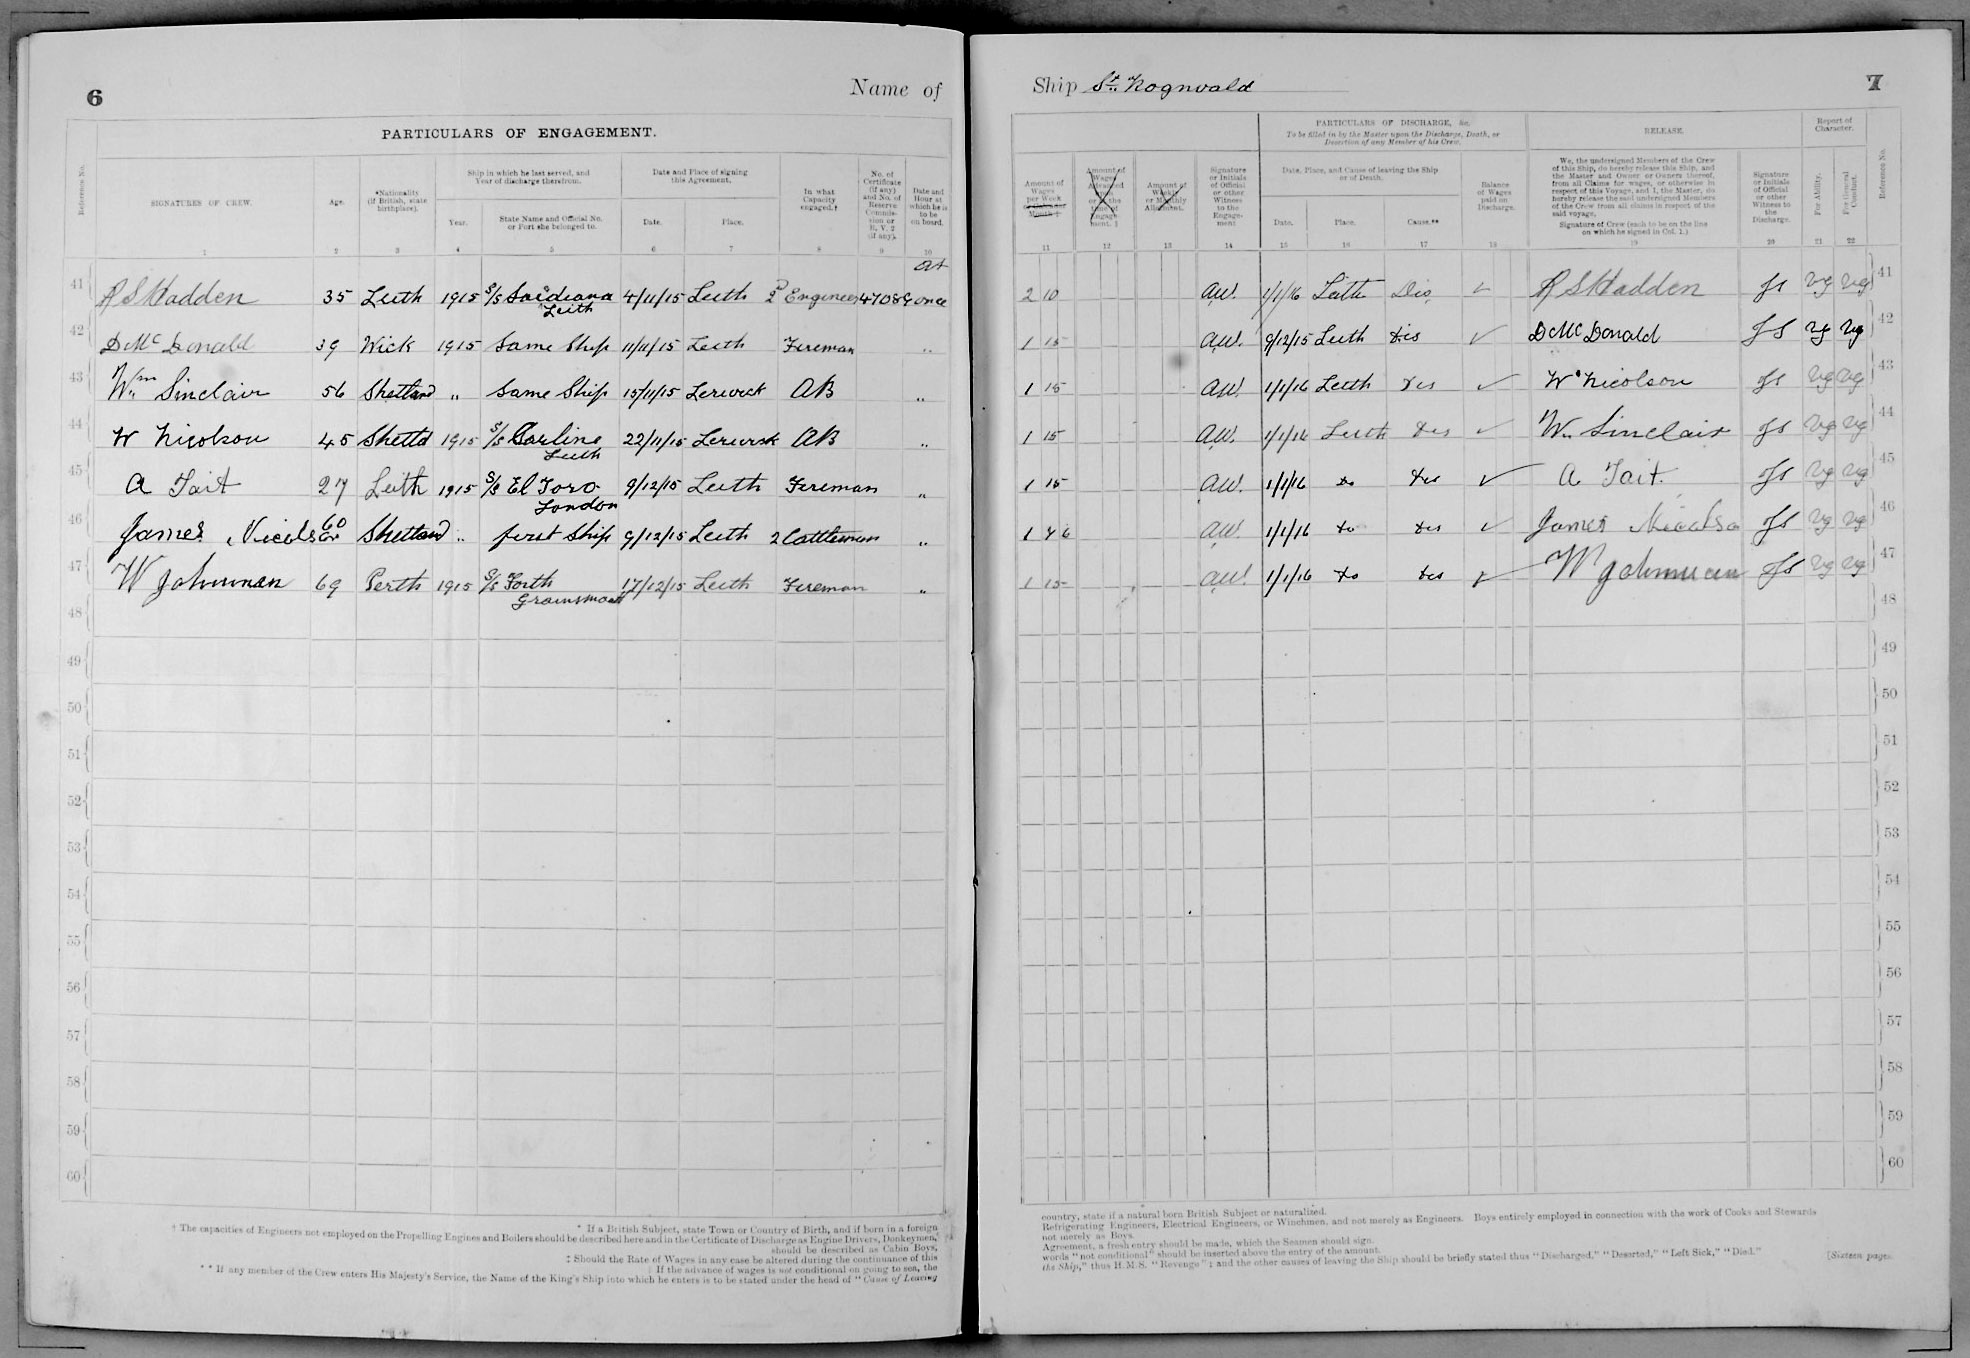 6
Name of
PARTICULARS OF ENGAGEMENT.
Reference No.
SIGNATURES OF CREW.
Age.
*Nationality (If British, state birthplace).
Ship in which he last served, and Year of discharge therefrom.
Year.
State Name and Official No. or Port she belonged to.
Date and Place of signing this Agreement.
Date.
Place.
In what Capacity engaged.†
No. of Certificate (if any) and No. of Reserve Commission or R. V. 2 (if any).
Date and Hour at which he is to be on board.
1 2 3 4 5 6 7 8 9 10
41 R S Hadden 35 Leith 1915 S/S Leith 4/11/15 Leith 2d Engineer 47089 At once
42 D McDonald 39 Wick 1915 Same Ship 11/11/15 Leith Fireman "
43 Wm Sinclair 56 Shetland " Same Ship 15/11/15 Lerwick AB "
44 W Nicolson 45 Shetld 1915 S/S Leith 22/11/15 Lerwick AB "
45 A Tait 27 Leith 1915 S/S El Toro London 9/12/15 Leith Fireman "
46 James Nicolson 60 Shetland " first Ship 9/12/15 Leith 2 Cattleman "
47 W Johnman 69 Perth 1915 S/S Forth 17/12/15 Leith Fireman "
48
49
50
51
52
53
54
55
56
57
58
59
60
* If a British Subject, state Town or Country of Birth, and if born in a foreign
† The capacities of Engineers not employed on the Propelling Engines and Boilers should be described here and in the Certificate of Discharge as Engine Drivers, Donkeymen,
should be described as Cabin Boys,
‡ Should the Rate of Wages in any case be altered during the continuance of this
If the advance of wages is not conditional on going to sea, the
** If any member of the Crew enters His Majesty's Service, the Name of the King's Ship into which he enters is to be stated under the head of "Cause of Leaving
Ship St. Rognvald
7
Amount of Wages per Week or Calendar Month ‡
Amount of Wages Advanced upon or at the time of Engagement. ‖
Amount of Weekly or Monthly Allotment.
Signature or Initials of Official or other Witness to the Engagement
PARTICULARS OF DISCHARGE, &c.
To be filled in by the Master upon the Discharge, Death, or Desertion of any Member of his Crew.
Date, Place, and Cause of leaving the Ship or of Death.
Date.
Place.
Cause.**
Balance of Wages paid on Discharge.
RELEASE.
We, the undersigned Members of the Crew of this Ship, do hereby release this Ship, and the Master and Owner or Owners thereof, from all Claims for wages, or otherwise in respect of this Voyage, and I, the Master, do hereby release the said undersigned Members of the Crew from all claims in respect of the said voyage.
Signature of Crew (each to be on the line on which he signed in Col. 1.)
Signature or Initials of Official or other Witness to the Discharge.
Report of Character.
For Ability.
For General Conduct.
Reference No.
11 12 13 14 15 16 17 18 19 20 21 22
2 10 AW. 1/1/16 Leith Dis R S Hadden JS Vg Vg 41
1 15 AW. 9/12/15 Leith Dis D McDonald JS Vg Vg 42
1 15 AW. 1/1/16 Leith Dis W Nicolson JS Vg Vg 43
1 15 AW. 1/1/16 Leith Dis Wm Sinclair JS Vg Vg 44
1 15 AW. 1/1/16 do Dis A Tait JS Vg Vg 45
AW. 1/1/16 do Dis James Nicolso JS Vg Vg 46
1 15 AW. 1/1/16 do Dis W Johnman JS Vg Vg 47
48
49
50
51
52
53
54
55
56
57
58
59
60
country, state if a natural born British Subject or naturalized.
Refrigerating Engineers, Electrical Engineers, or Winchmen, and not merely as Engineers. Boys entirely employed in connection with the work of Cooks and Stewards
not merely as Boys.
Agreement, a fresh entry should be made, which the Seamen should sign.
words "not conditional" should be inserted above the entry of the amount.
the Ship," thus H.M.S. "Revenge"; and the other causes of leaving the Ship should be briefly stated thus "Discharged," "Deserted," "Left Sick," "Died."
[Sixteen pages.